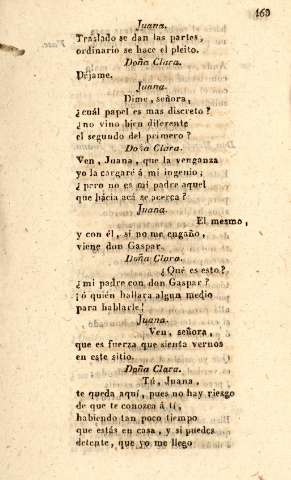 169
Juana.
Traslado se dan las partes,
ordinario se hace el pleito.
Doña Clara.
Déjame.
Juana.
Dime, señora,
¿cuál papel es mas discreto?
¿no vino bien diferente
el segundo del primero?
Doña Clara.
Ven, Juana, que la venganza
yo la cargaré á mi ingenio;
¿pero no es mi padre aquel
que hácia acá se acerca?
Juana.
El mesmo,
y con él, si no me engaño,
viene don Gaspar.
Doña Clara.
¿Qué es esto?
¿mi padre con don Gaspar?
¡ó quién hallara algun medio
para hablarle!
Juana.
Ven, señora,
que es fuerza que sienta vernos
en este sitio.
Doña Clara.
Tú, Juana,
te queda aquí, pues no hay riesgo
de que te conozca á tí,
habiendo tan poco tiempo
que estás en casa, y si puedes
detente, que yo me llego